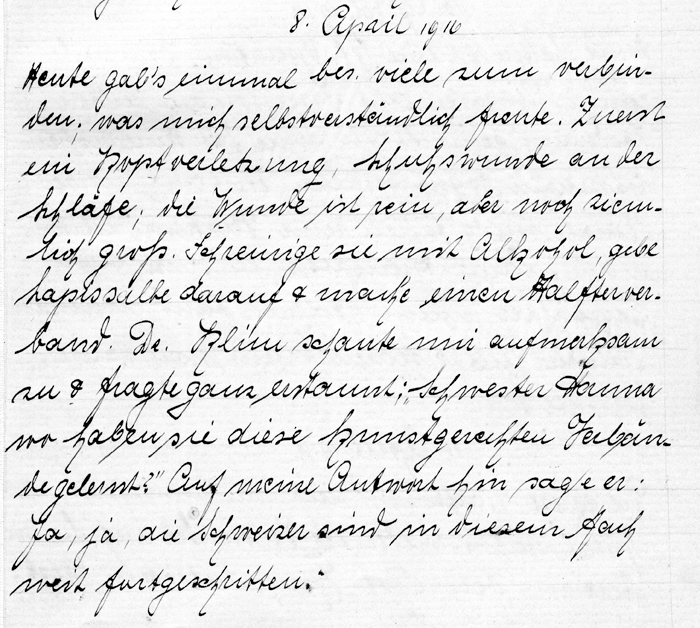 8. April 1916
Heute gab's einmal bes. viele zum verbin-
den, was mich selbstverständlich freute. Zuerst
ein Kopfverletzung, Schußwunde an der
Schläfe; die Wunde ist rein, aber noch ziem-
lich groß. Ich reinige sie mit Alkohol, gebe
Lapissalbe darauf & mache einen Halfterver-
band. Dr. Klim schaute mir aufmerksam
zu & fragte ganz erstaunt: „Schwester Hanna
wo haben sie diese kunstgerechten Verbän-
de gelernt?" Auf meine Antwort hin sagte er:
Ja, ja, die Schweizer sind in diesem Fach
weit fortgeschritten."